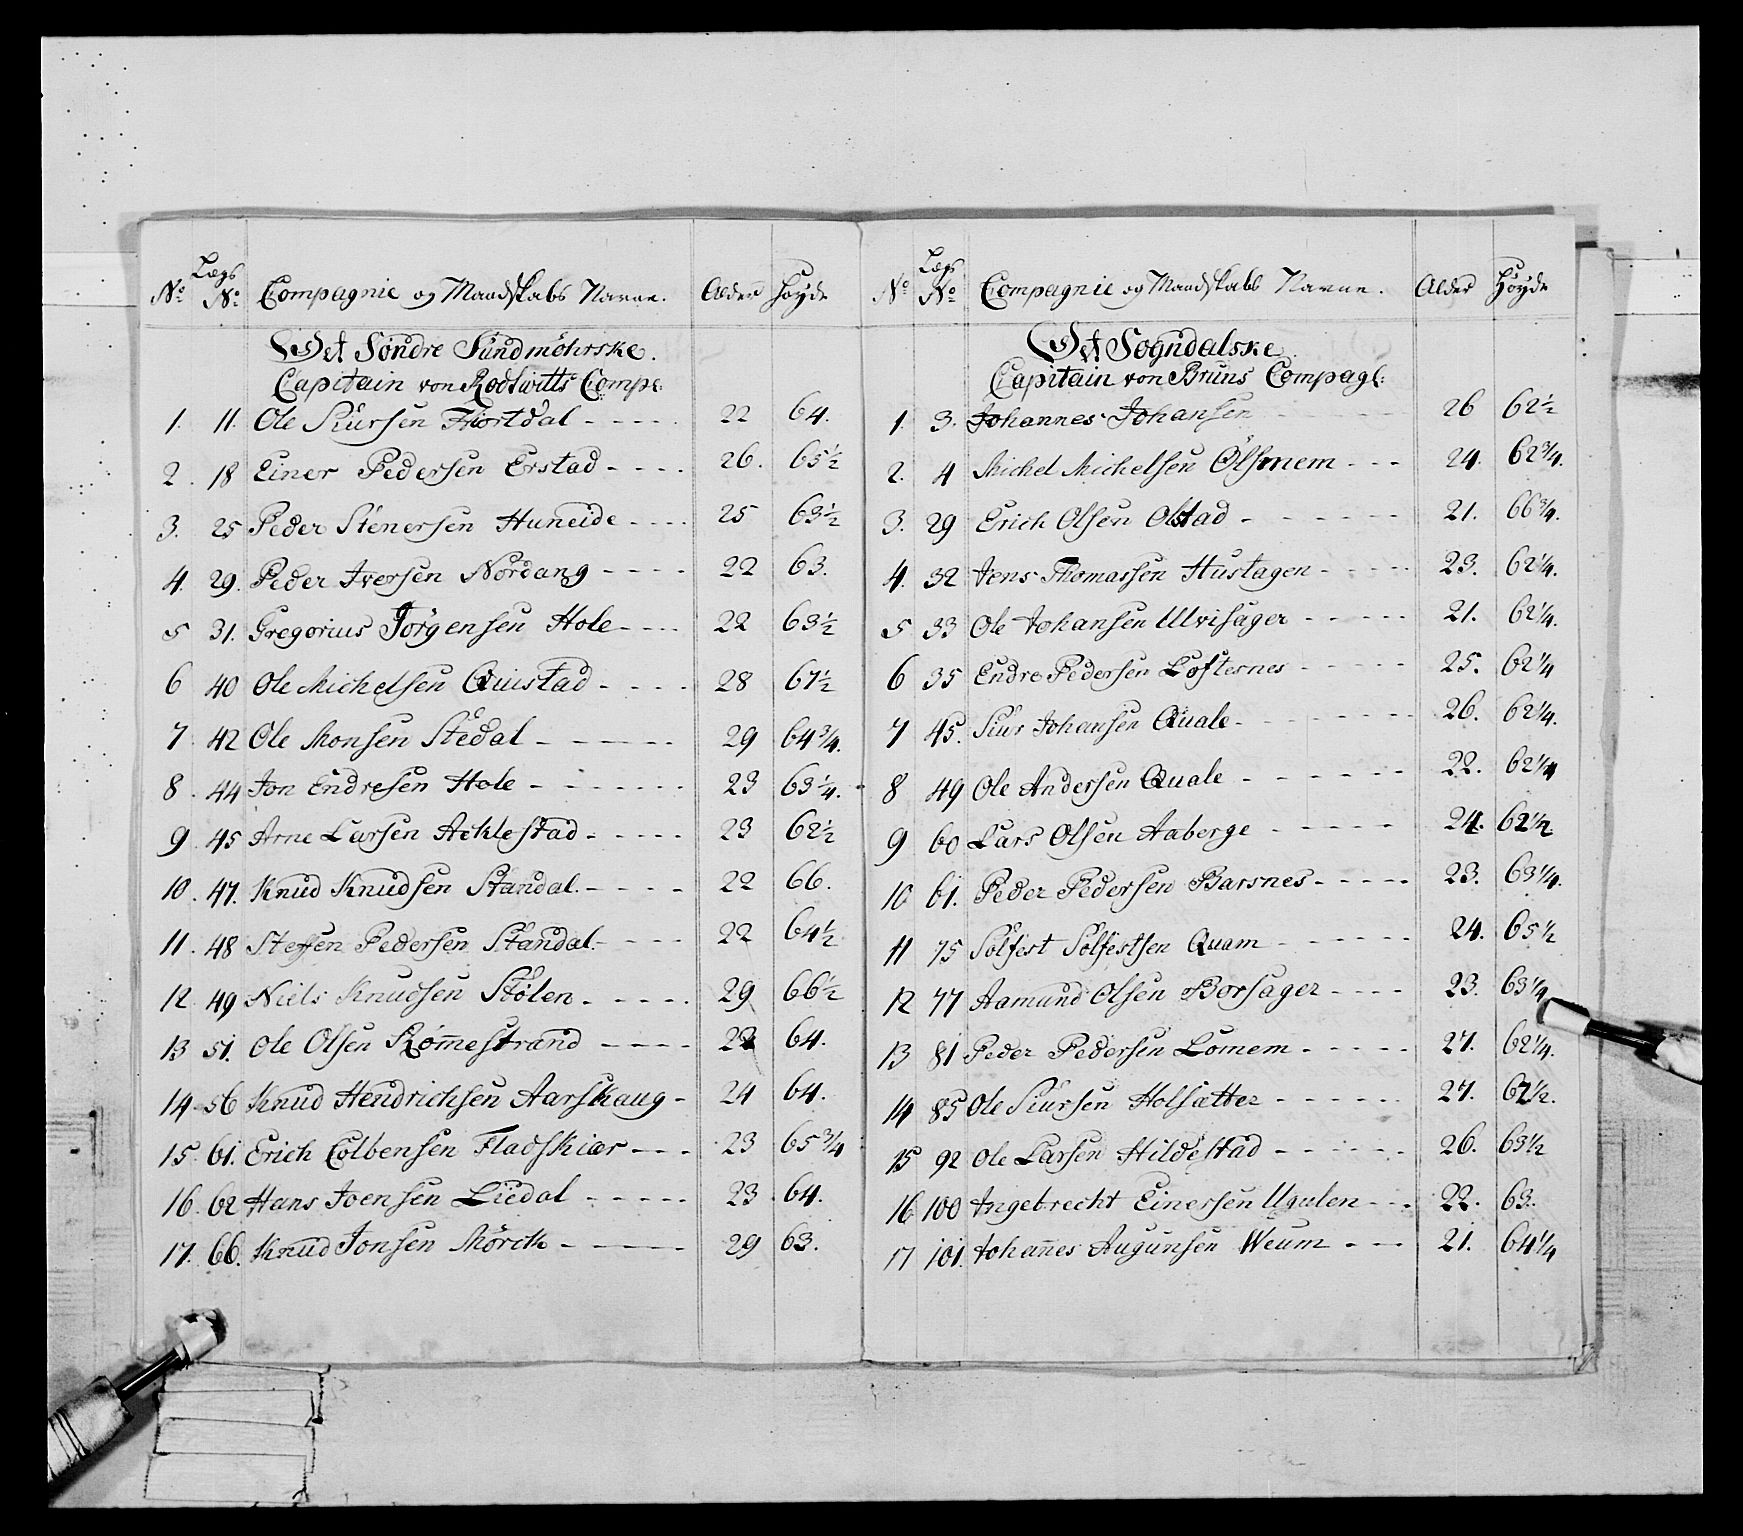 No Lægs No Compagnie og Mandskabs Navne. Alder Høyde
Det Søndre Sundmöhrske.
Capitain von Rodtwitts Comp:
1. 11. Ole Siursen Fiortdal - - - - - 22 64.
2. 18 Einer Pedersen Erstad - - - - 26. 65½
3. 25 Peder Stenersen Huneide - - - - 25 63½
4. 29. Peder Iversen Nordang - - - - 22 63.
5 31. Gregorius Jörgensen Hole - - - - 22 63½
6 40 Ole Michelsen Quistad - - - - 28 67½
7 42 Ole Monsen Stedal - - - - - 29 64¾.
8. 44 Jon Endresen Hole - - - - - - 23 63¼.
9. 45 Arne Larsen Aeklestad - - - - - 23 62½
10. 47. Knud Knudsen Standal. - - - - 22 66.
11. 48 Steffen Pedersen Standal. - - - - 22 64½
12. 49 Niels Knudsen Stølen - - - - - 29 66½
13 51. Ole Olsen Rømestrand - - - - 23 64.
14 56 Knud Hendrichsen Aarskaug - 24 64.
15. 61. Erich Colbensen Fladskiær - - - 23 65¾
16. 62 Hans Joensen Liedal - - - - - 23. 64.
17. 66. Knud Jonsen Mörck - - - - - 29 63.
No Lægs No Compagnie og Mandskabs Navne. Alder Høyde
Det Sogndalske
Capitain von Bruns Compagl:
1. 3. Johannes Johansen - - - - 26 62½
2. 4 Michel Michelsen Ölsmem - - - 24. 62¾.
3. 29 Erich Olsen Olstad - - - - - - 21. 66¾.
4. 32 Jens Thomassen Hustagen - - - - - 23. 62¼.
5. 33 Ole Johansen Ulvisager - - - - - 21. 62¼.
6 35 Endre Pedersen Loftesnes - - - - - 25. 62¼
7 45. Siur Johansen Quale - - - - - - - 26. 62¼.
8 49 Ole Andersen Quale - - - - - - 22. 62¼
9 60 Lars Olsen Aaberge - - - - - 24. 62½
10 61. Peder Pedersen Barsnes - - - - - 23. 63¼.
11 75 Solfest Solfestsen Quam - - - - - - 24. 65½
12 77 Aamund Olsen Borsager - - - - 23. 63¼
13 81 Peder Pedersen Lomem - - - - - 27. 62¼.
14 85 Ole Siursen Holsætter - - - - - - 27. 62½.
15 92 Ole Larsen Hildestad - - - - - - 26. 63½
16 100 Ingebrecht Einersen Ugulen - - - 22. 63.
17 101. Johanes Augunsen Weum - - - 21. 64¼